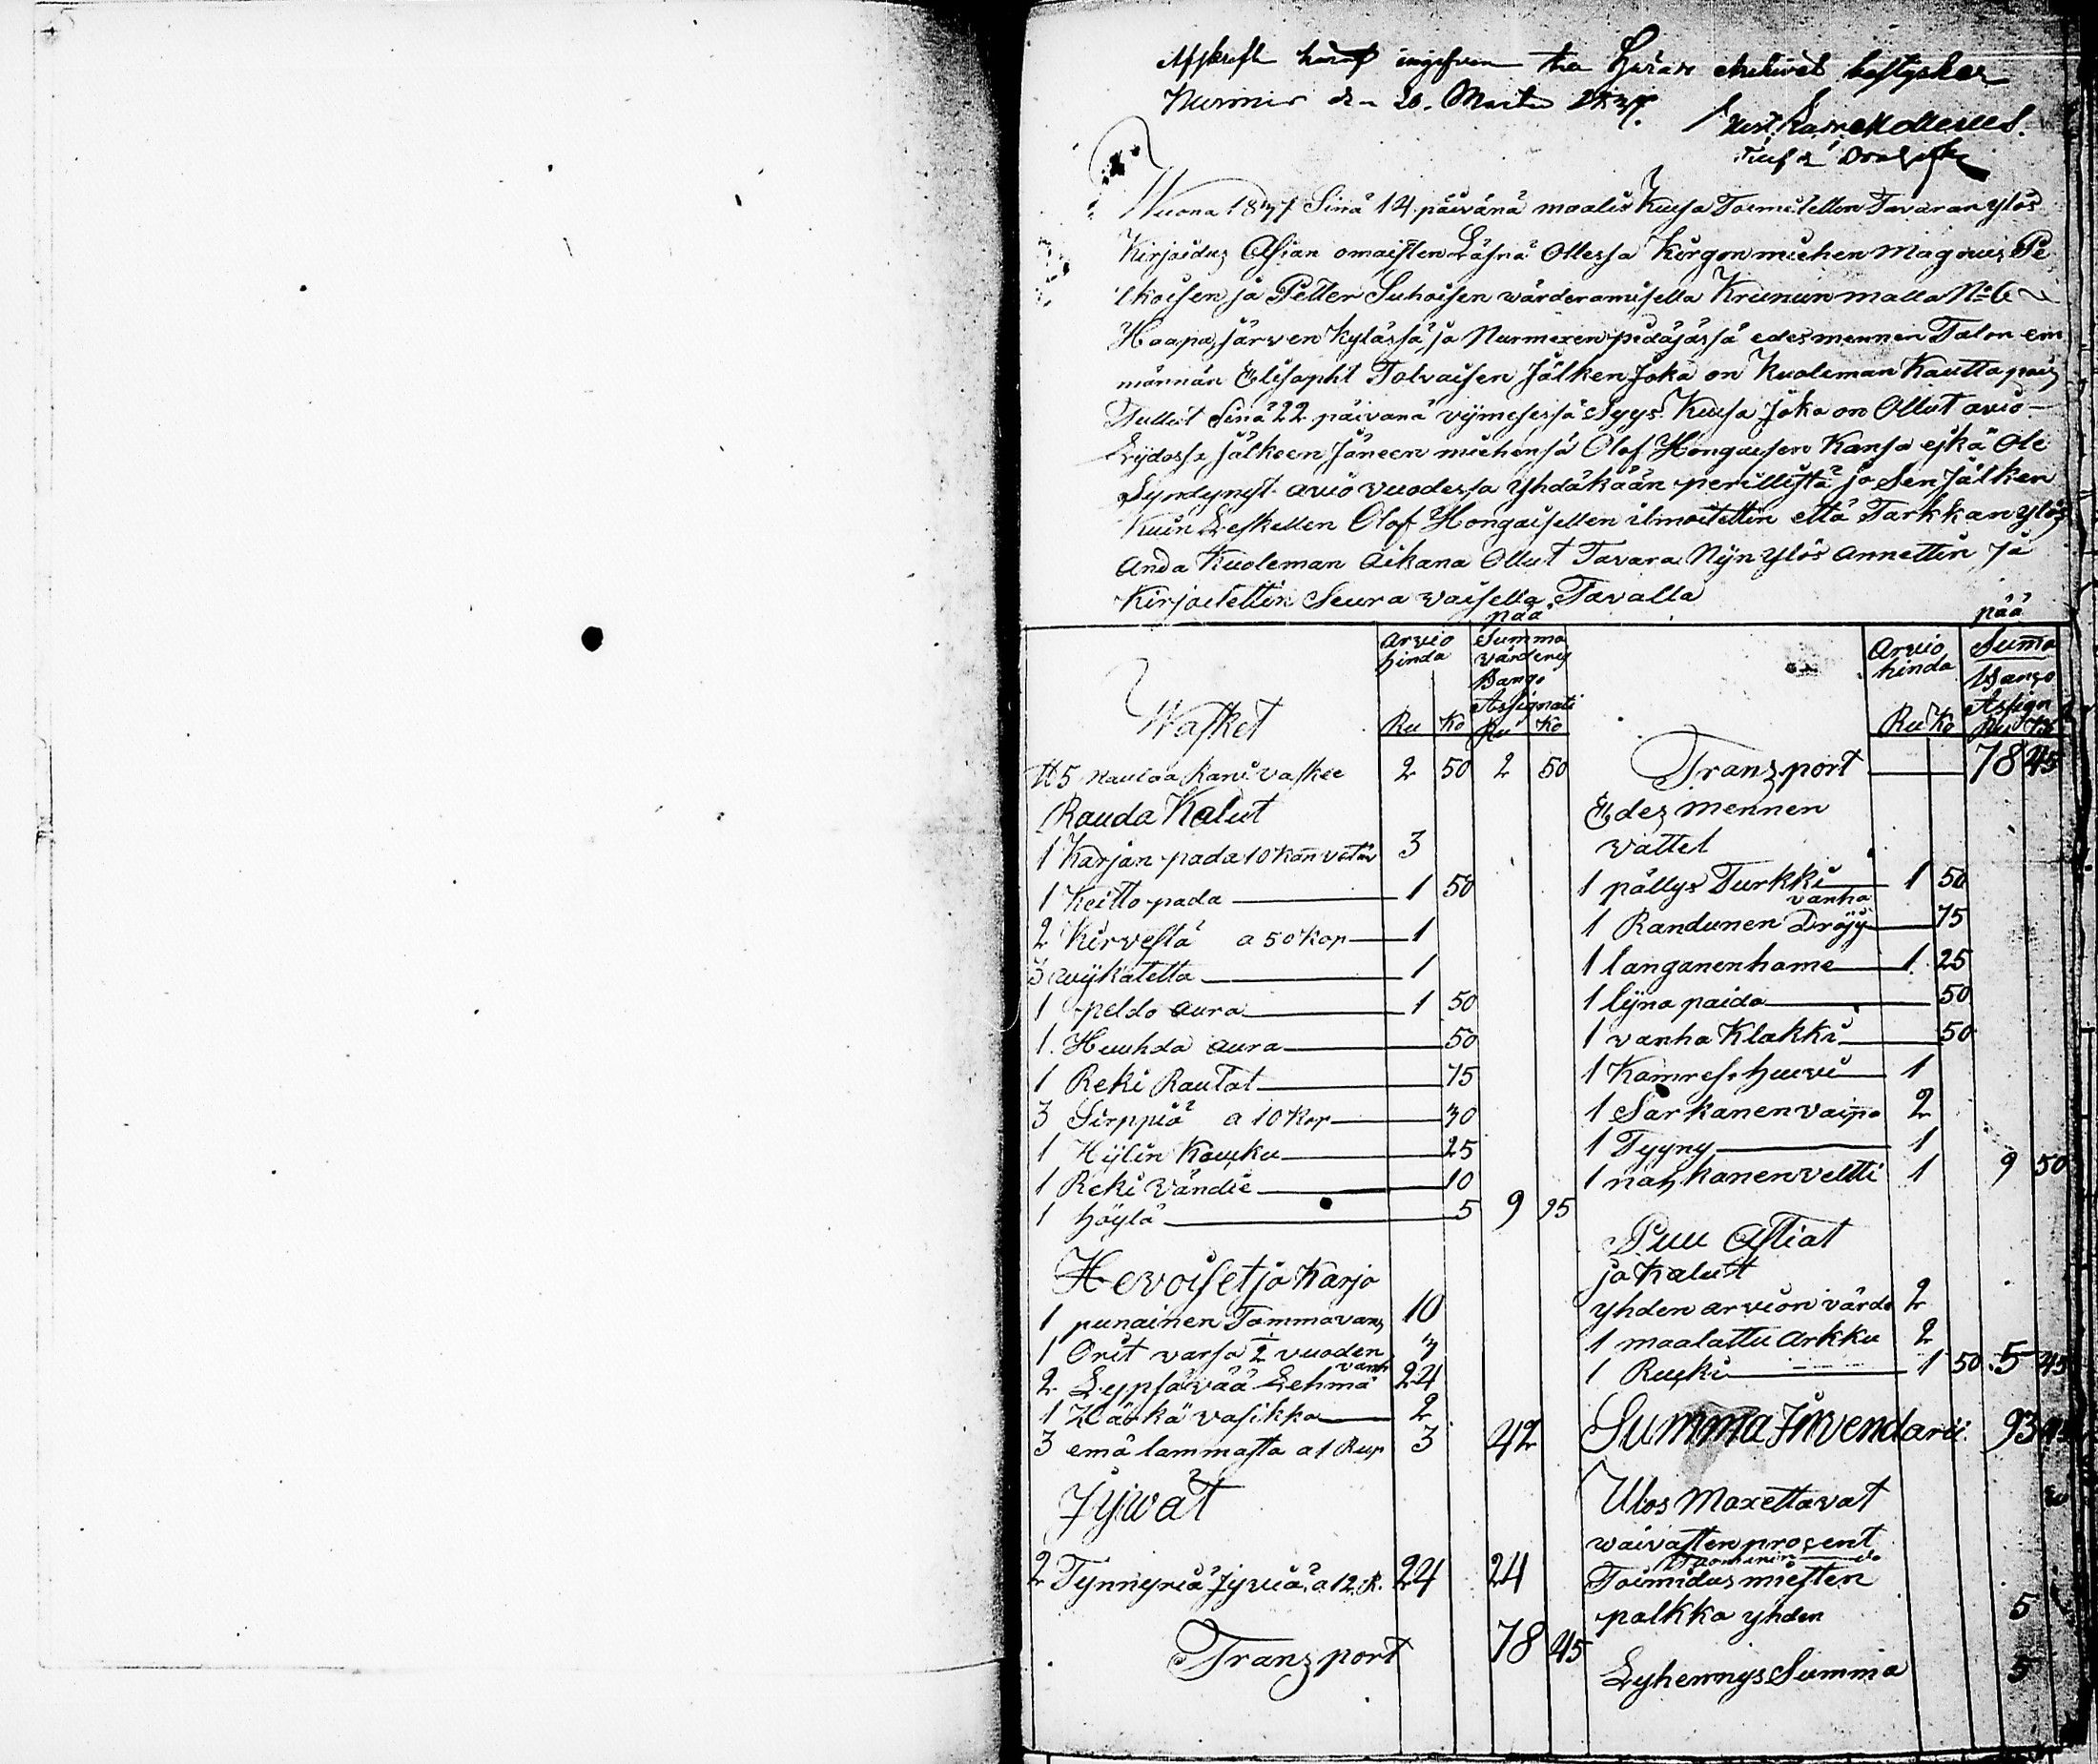 Afskrift häraf ingifven
Nurmis den 20. Martii
Wuona 1837 Sinä 14 päivänä maalis Kuusa Toimitettin Tavaran ylös
Kirjoidus Asian omaisten Läsnä Ollessa Kirgon miehen Magnus Pe
ja Petter Suhoisen wärderamisella Krunun malla No 6
Haapajärven Kylässä ja Nurmexen pidäjässä edesmennen Talon em
männän Elisapht Tolvaisen Jälken Joka on Kuoleman Kautta pois
Tullut Sinä 22 päivänä vijmesessä Syys Kuusa Joka on Ollut avio-
Lijdosse Jälkeen Jäneen miehensä Olof Hongaisen Kansa eikä Ole
Syndynest avio vuodessa yhdäkään perillistä ja Sen Jälken
Kuin Leskellen Olof Hongaisellen ilmoitettin että Tarkkan ylös
Anda Kuoleman Aikana Ollut Tavara Nijn ylös Annettin Ja
Kirjoitettin Seura waisella Tavalla
Wasket Arvio hinda Ru Ko pää Summa värdering Bango Assignati Ru Ko
5 naulaa vaskee 2 50 2 50
Rauda Kalut
1 Karjan pada 10 Kan vetäv 3
1 Keitto pada 1 50
2 Kirvestä a 50 Kop 1
3 wijkatetta 1
1 peldo aura 1 50
1 Huuhda aura 50
1 Reki Rautat 75
3 Sirppiä a 10 Kop 30
1 Hijlin Kouku 25
1 Reki Vändie 10
1 höylä 5 9 95
Hevoiset ja Karja
1 punainen Tamma vanh 10
1 Orit varsa ½ vuoden vanh 3
2 Lypsävää Lehmä 24
1 Härkä vasikka 2
3 emä lammasta a 1 Rup 3 42
Jywät
2 Tynnyriä Jyviä a 12 R. 24 24
Transport 78 45
Arvio hinda Ru Ko pää Suma Bango Assign Ru Ko
Transport 78 45
Edes mennen
vattet
1 pällys Turkki vanha 1 50
1 Randunen Dröjy 75
1 langanen hame 1 25
1 lijna paida 50
1 vanha Klakki 50
1 huivi 1
1 Sarkanen vaipa 2
1 Tyyny 1
1 nahkanen veltti 1 9 50
Puu Astiat
ja Kalutt
yhden arvion värde 2
1 maalattu arkku 2
1 Rukki 1 50 5 45
Summa Inventarii 93
Ulos Maxettavat
waivasten prosent
Toimidus miesten
palkka yhden 5
Lyhennys Summa 5